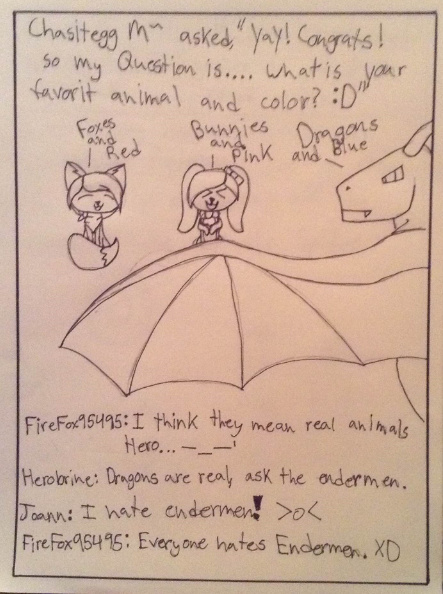 Chasitegg M~ asked, "Yay! Congrats!
so my Question is.... what is your
favorit animal and color? :D"
Foxes
and
Red
Bunnies
and
Pink
Dragons
and Blue
FireFox95495: I think they mean real animals
Hero... —_—'
Herobrine: Dragons are real, ask the endermen.
Joann: I hate endermen! >o<
FireFox95495: Everyone hates Endermen. XD